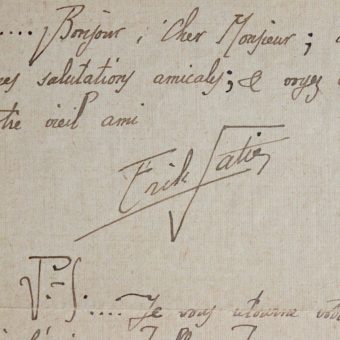 .... Bonjour, Cher Monsieur;
salutations amicales; & voyez
vieil ami
Erik Satie
P.-S. .... Je vous retourne